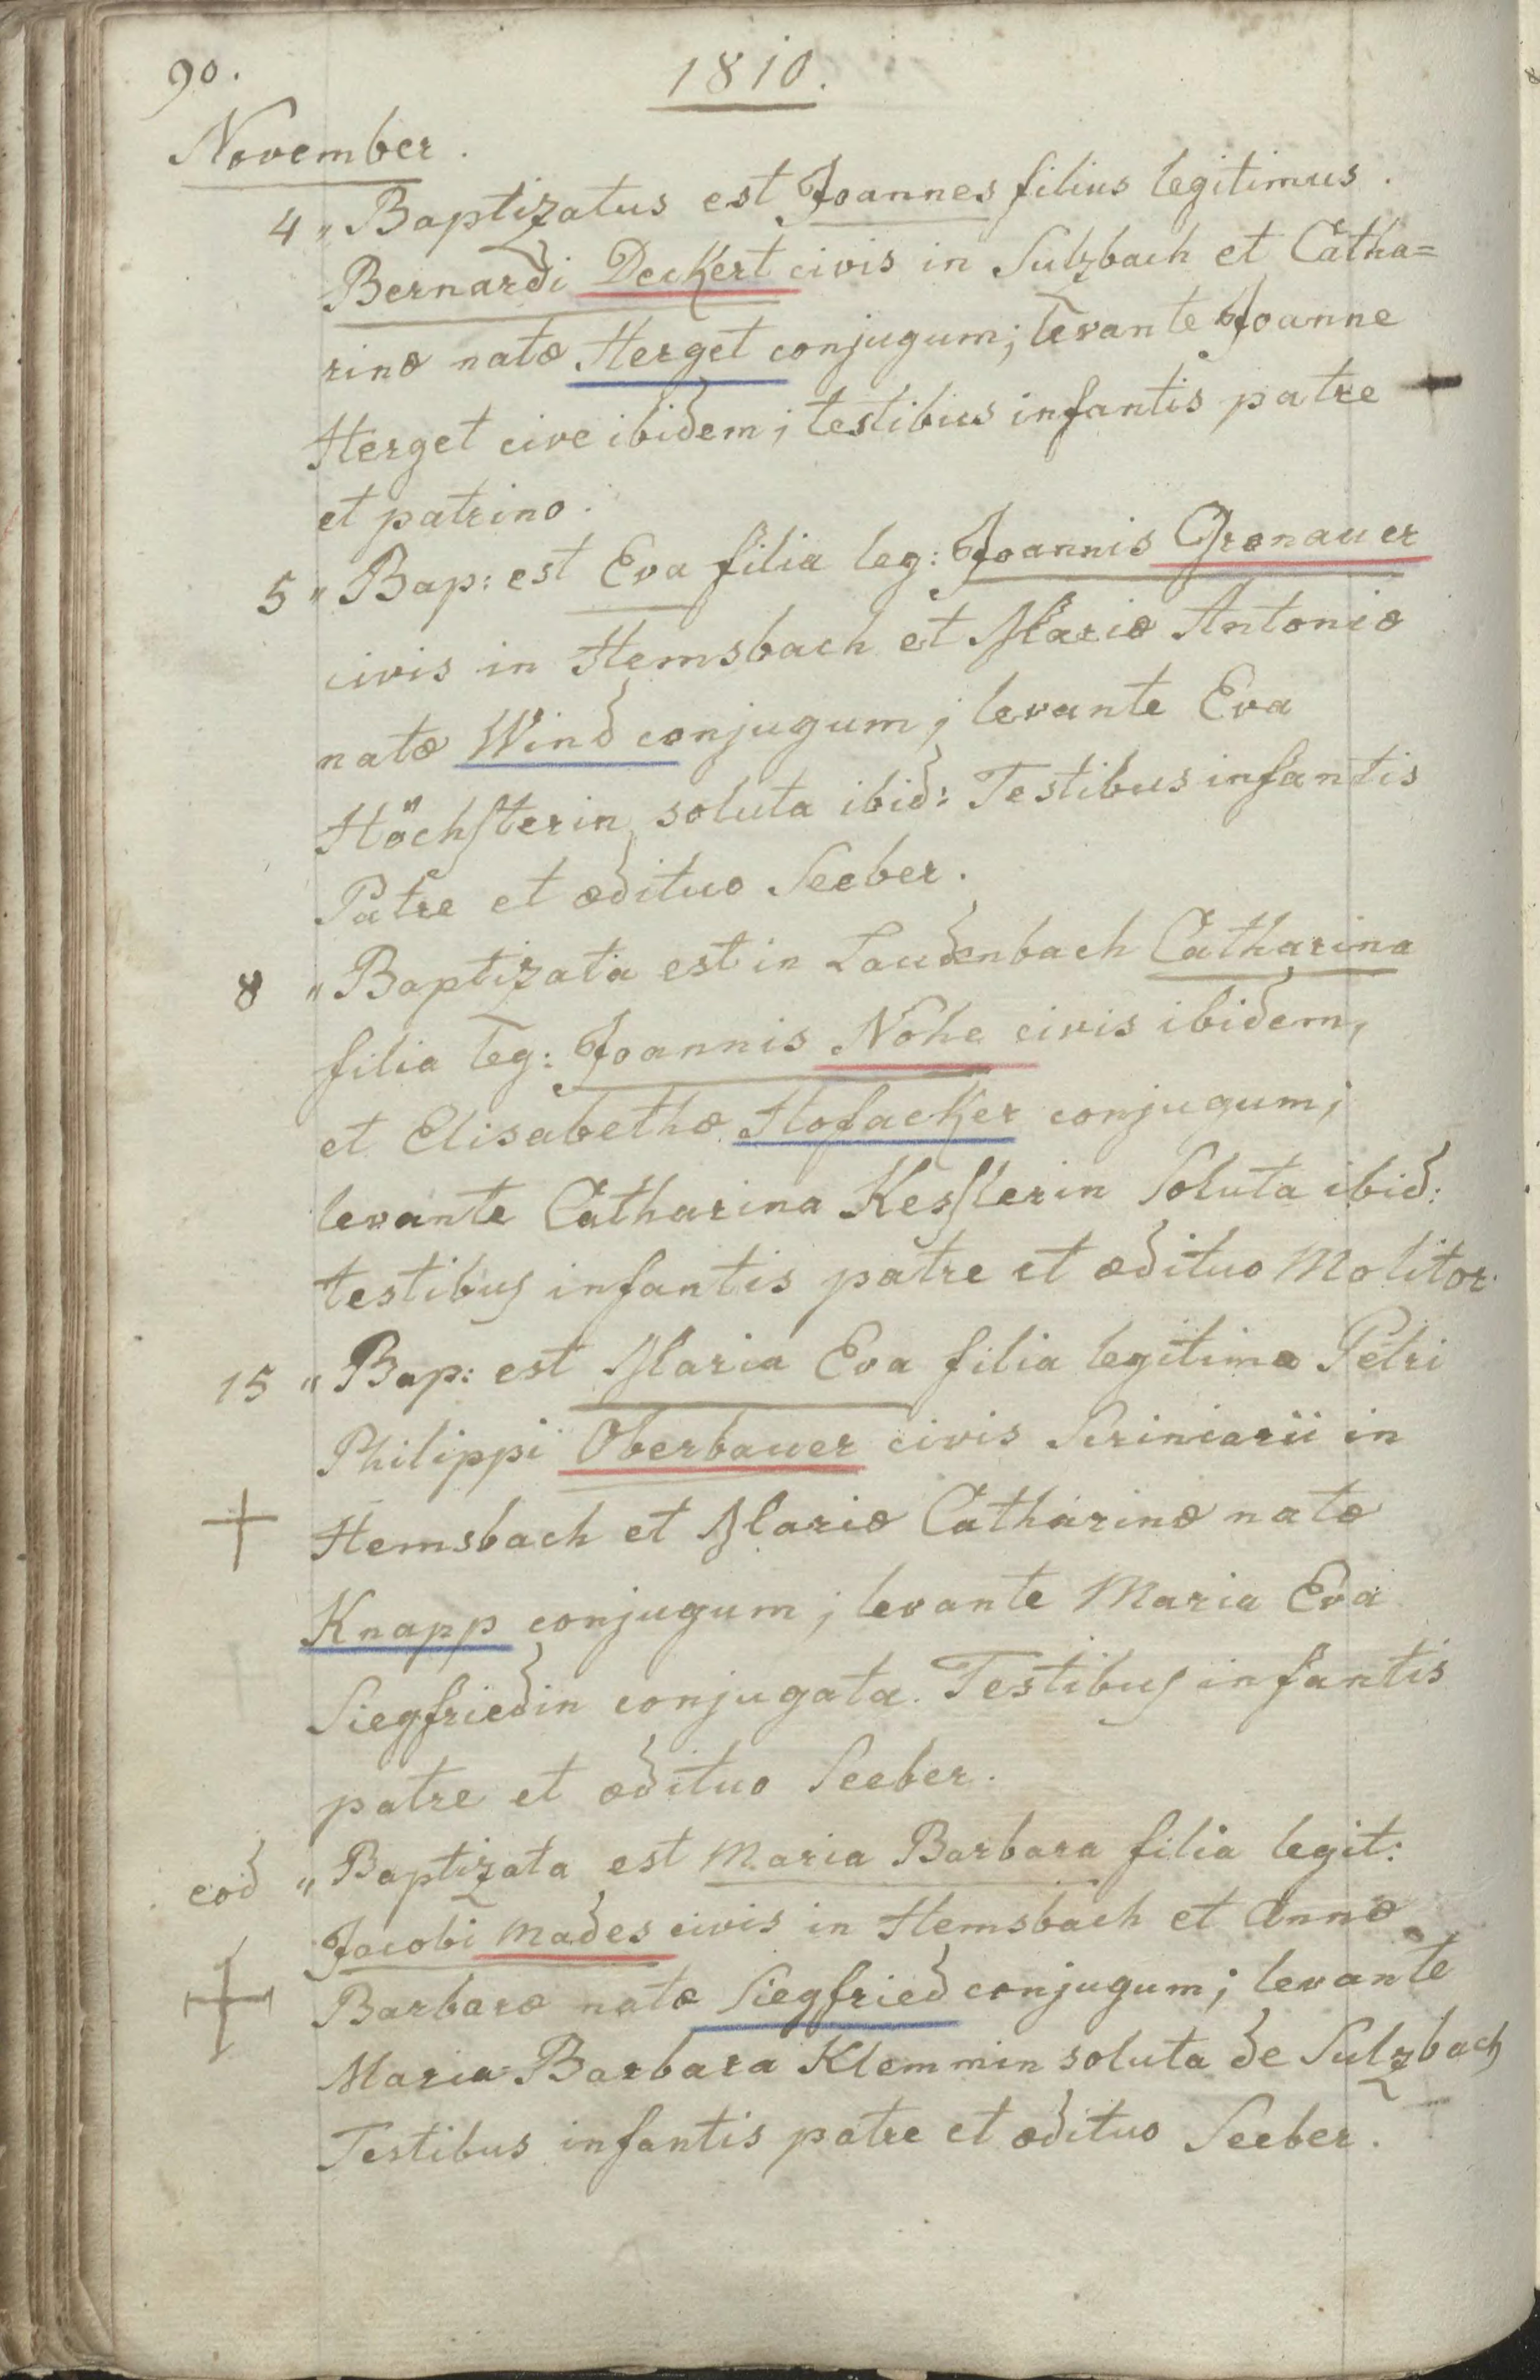 90.
1810.
November.
4 " Baptizatus est Joannes filius legitimus.
Bernardi Deckert civis in Sulzbach et Catha=
rinæ natæ Herget conjugum; levante Joanne
Herget cive ibidem; testibus infantis patre
et patrino.
5 " Bap: est Eva filia leg: Joannis Gronauer
civis in Hemsbach et Mariæ Antoniæ
natæ Wind conjugum; levante Eva
Höchsterin soluta ibid: Testibus infantis
Patre et ædituo Seeber.
8 " Baptizata est in Laudenbach Catharina
filia leg: Joannis Nohe civis ibidem,
et Elisabethæ Hofacker conjugum;
levante Catharina Kesslerin Soluta ibid:
testibus infantis patre et ædituo Molitor.
15 " Bap: est Maria Eva filia legitima Petri
Philippi Oberbauer civis Scriniarii in
Hemsbach et Mariæ Catharinæ natæ
Knapp conjugum; levante Maria Eva
Siegfriedin conjugata. Testibus infantis
patre et ædituo Seeber.
eod " Baptizata est Maria Barbara filia legit:
Jacobi Mades civis in Hemsbach et Annæ
Barbaræ natæ Siegfried conjugum; levante
Maria Barbara Klemmin soluta de Sulzbach
Testibus infantis patre et ædituo Seeber.